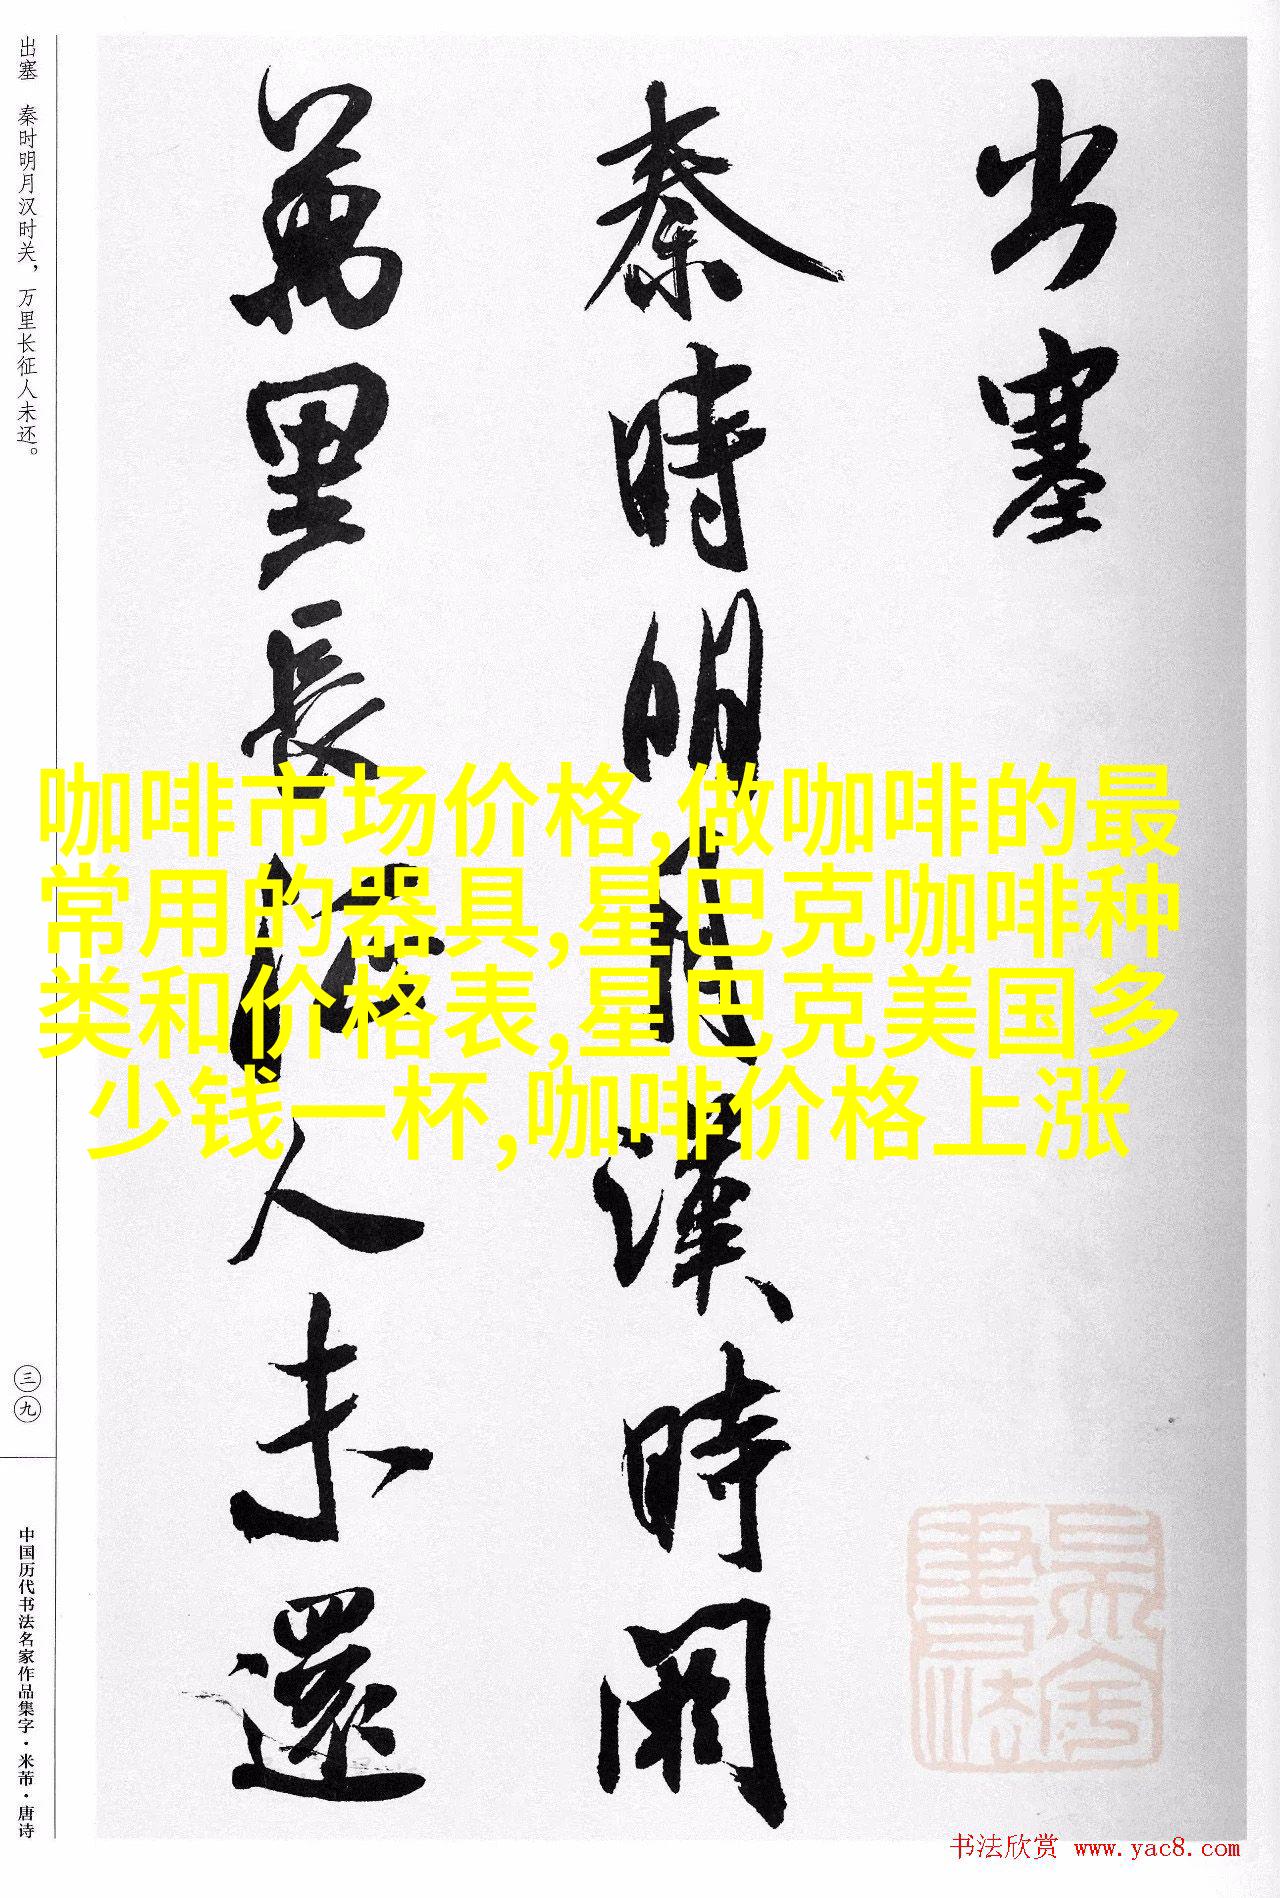 出塞
秦時明月漢時關
萬里長征人未還
出塞 秦时明月汉时关，万里长征人未还。
三九
中国历代书法名家作品集字·米芾·唐诗
咖啡市场价格,做咖啡的最
常用的器具,星巴克咖啡种
类和价格表,星巴克美国多
少钱一杯,咖啡价格上涨
书法欣赏 www.yac8.com